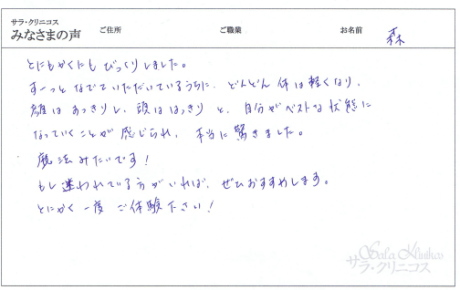 サラ・クリニコス
みなさまの声 ご住所 ご職業 お名前 森
とにもかくにも びっくりしました。
すーっと なでていただいているうちに、どんどん 体は軽くなり、
顔は すっきりし、頭は はっきり と、自分がベストな状態に
なっていくことが 感じられ、本当に 驚きました。
魔法みたいです！
もし迷われている方がいれば、ぜひおすすめします。
とにかく一度 ご体験下さい！
Sala Klinikos
サラ・クリニコス